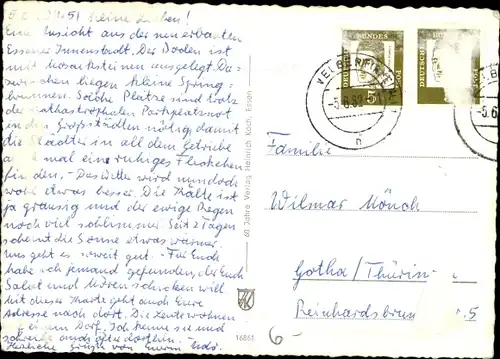 Meine Lieben!
Eine Ansicht aus der neuerbauten
Essener Innenstadt. Der Boden ist
mit Mosaiksteinen ausgelegt. Da-
zwischen liegen kleine Spring-
brunnen. Solche Plätze sind trotz
der katastrophalen Parkplatznot
in den Großstädten nötig, damit
die Städter in all dem Getriebe
mal ein ruhiges Fleckchen
finden. - Das Wetter wird nun doch
wohl etwas besser. Die Kälte ist
ja grausig und der ewige Regen
noch viel schlimmer. Seit 2 Tagen
scheint die Sonne etwas wärmer.
Uns geht es soweit gut. - Für Euch
habe ich jemand gefunden, der Euch
Salat und Möhren schicken will
mit dieser Karte geht auch Eure
Adresse nach dort. Die Leute wohnen
einem Dorf. Ich kenne sie und
schreibe auch öfter dorthin.
Herzliche Grüße von
60 Jahre Verlag Heinrich Koch, Essen
16861
DEUTSCHE BUNDESPOST
5
DEUTSCHE BUNDESPOST
VELBERT
-5.6.62
Familie
Wilmar Mönch
Gotha/Thürin
Reinhardsbrun 5
6-